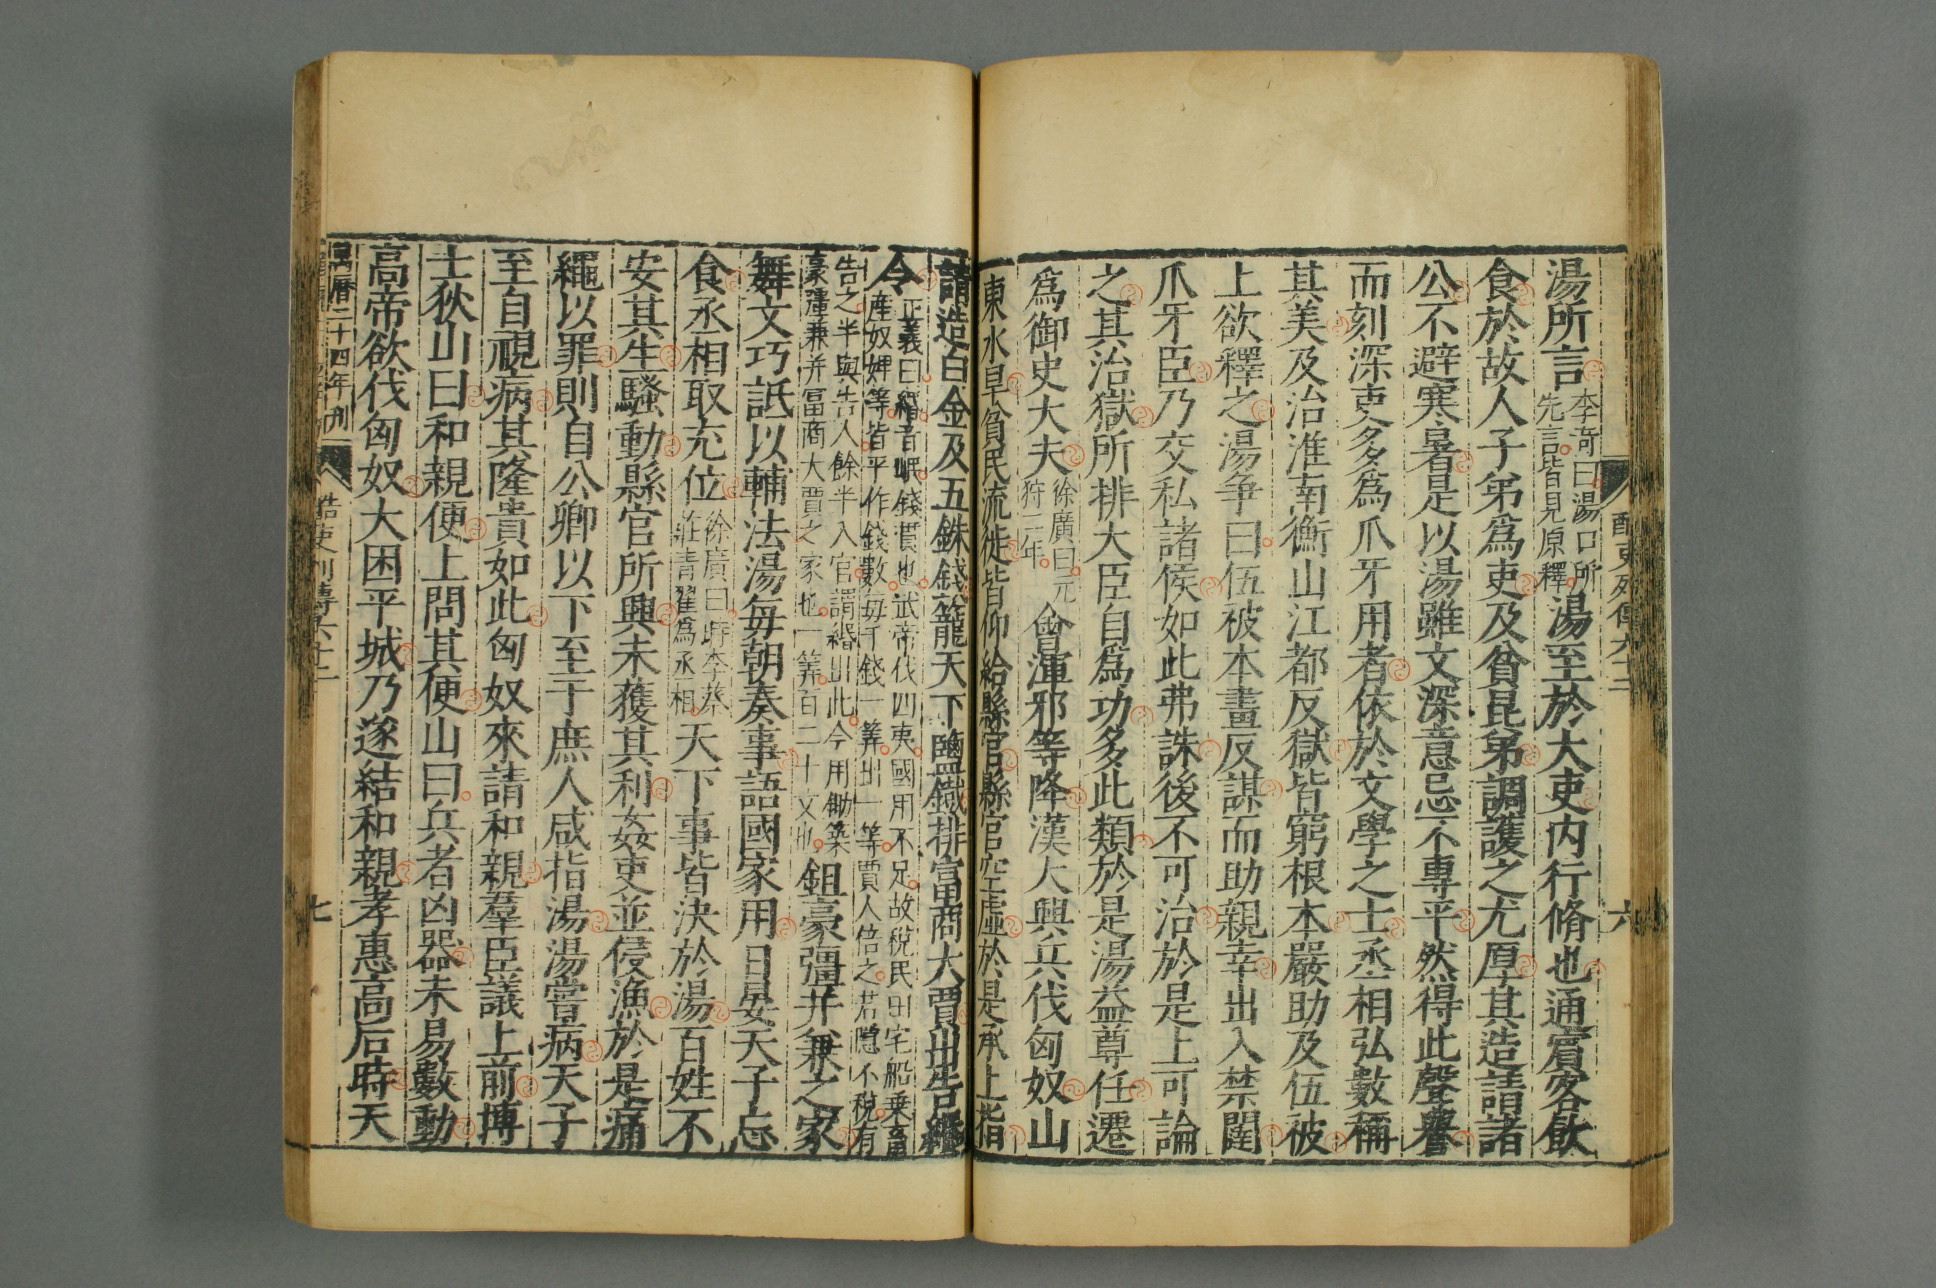 酷吏列傳六十二　六
湯所言李奇曰湯口所先言皆見原釋湯至於大吏内行脩也通賓客飲
食於故人子弟爲吏及貧昆弟調護之尤厚其造請諸
公不避寒暑是以湯雖文深意忌不專平然得此聲譽
而刻深吏多爲爪牙用者依於文學之士丞相弘數稱
其美及治淮南衡山江都反獄皆窮根本嚴助及伍被
上欲釋之湯爭曰伍被本畫反謀而助親幸出入禁闥
爪牙臣乃交私諸侯如此弗誅後不可治於是上可論
之其治獄所排大臣自爲功多此類於是湯益尊任遷
爲御史大夫徐廣曰元狩二年會渾邪等降漢大興兵伐匈奴山
東水旱貧民流徙皆仰給縣官縣官空虛於是承上指
請造白金及五銖錢籠天下鹽鐵排富商大賈出告緡
令正義曰緡音岷錢貫也武帝伐四夷國用不足故稅民田宅船乗畜
産奴婢等皆平作錢數每千錢一筭出一等賈人倍之若隱不稅有
告之半與告人餘半入官謂緡出此令用鋤築
豪彊兼并富商大賈之家也一筭百二十文也鉏豪彊并兼之家
舞文巧詆以輔法湯每朝奏事語國家用日晏天子忘
食丞相取充位徐廣曰時李蔡莊青翟爲丞相天下事皆決於湯百姓不
安其生騷動縣官所興未獲其利姦吏並侵漁於是痛
繩以罪則自公卿以下至于庶人咸指湯湯嘗病天子
至自視病其隆貴如此匈奴來請和親羣臣議上前博
士狄山曰和親便上問其便山曰兵者凶器未易數動
高帝欲伐匈奴大困平城乃遂結和親孝惠高后時天
萬曆二十四年刊　酷吏列傳六十二　七